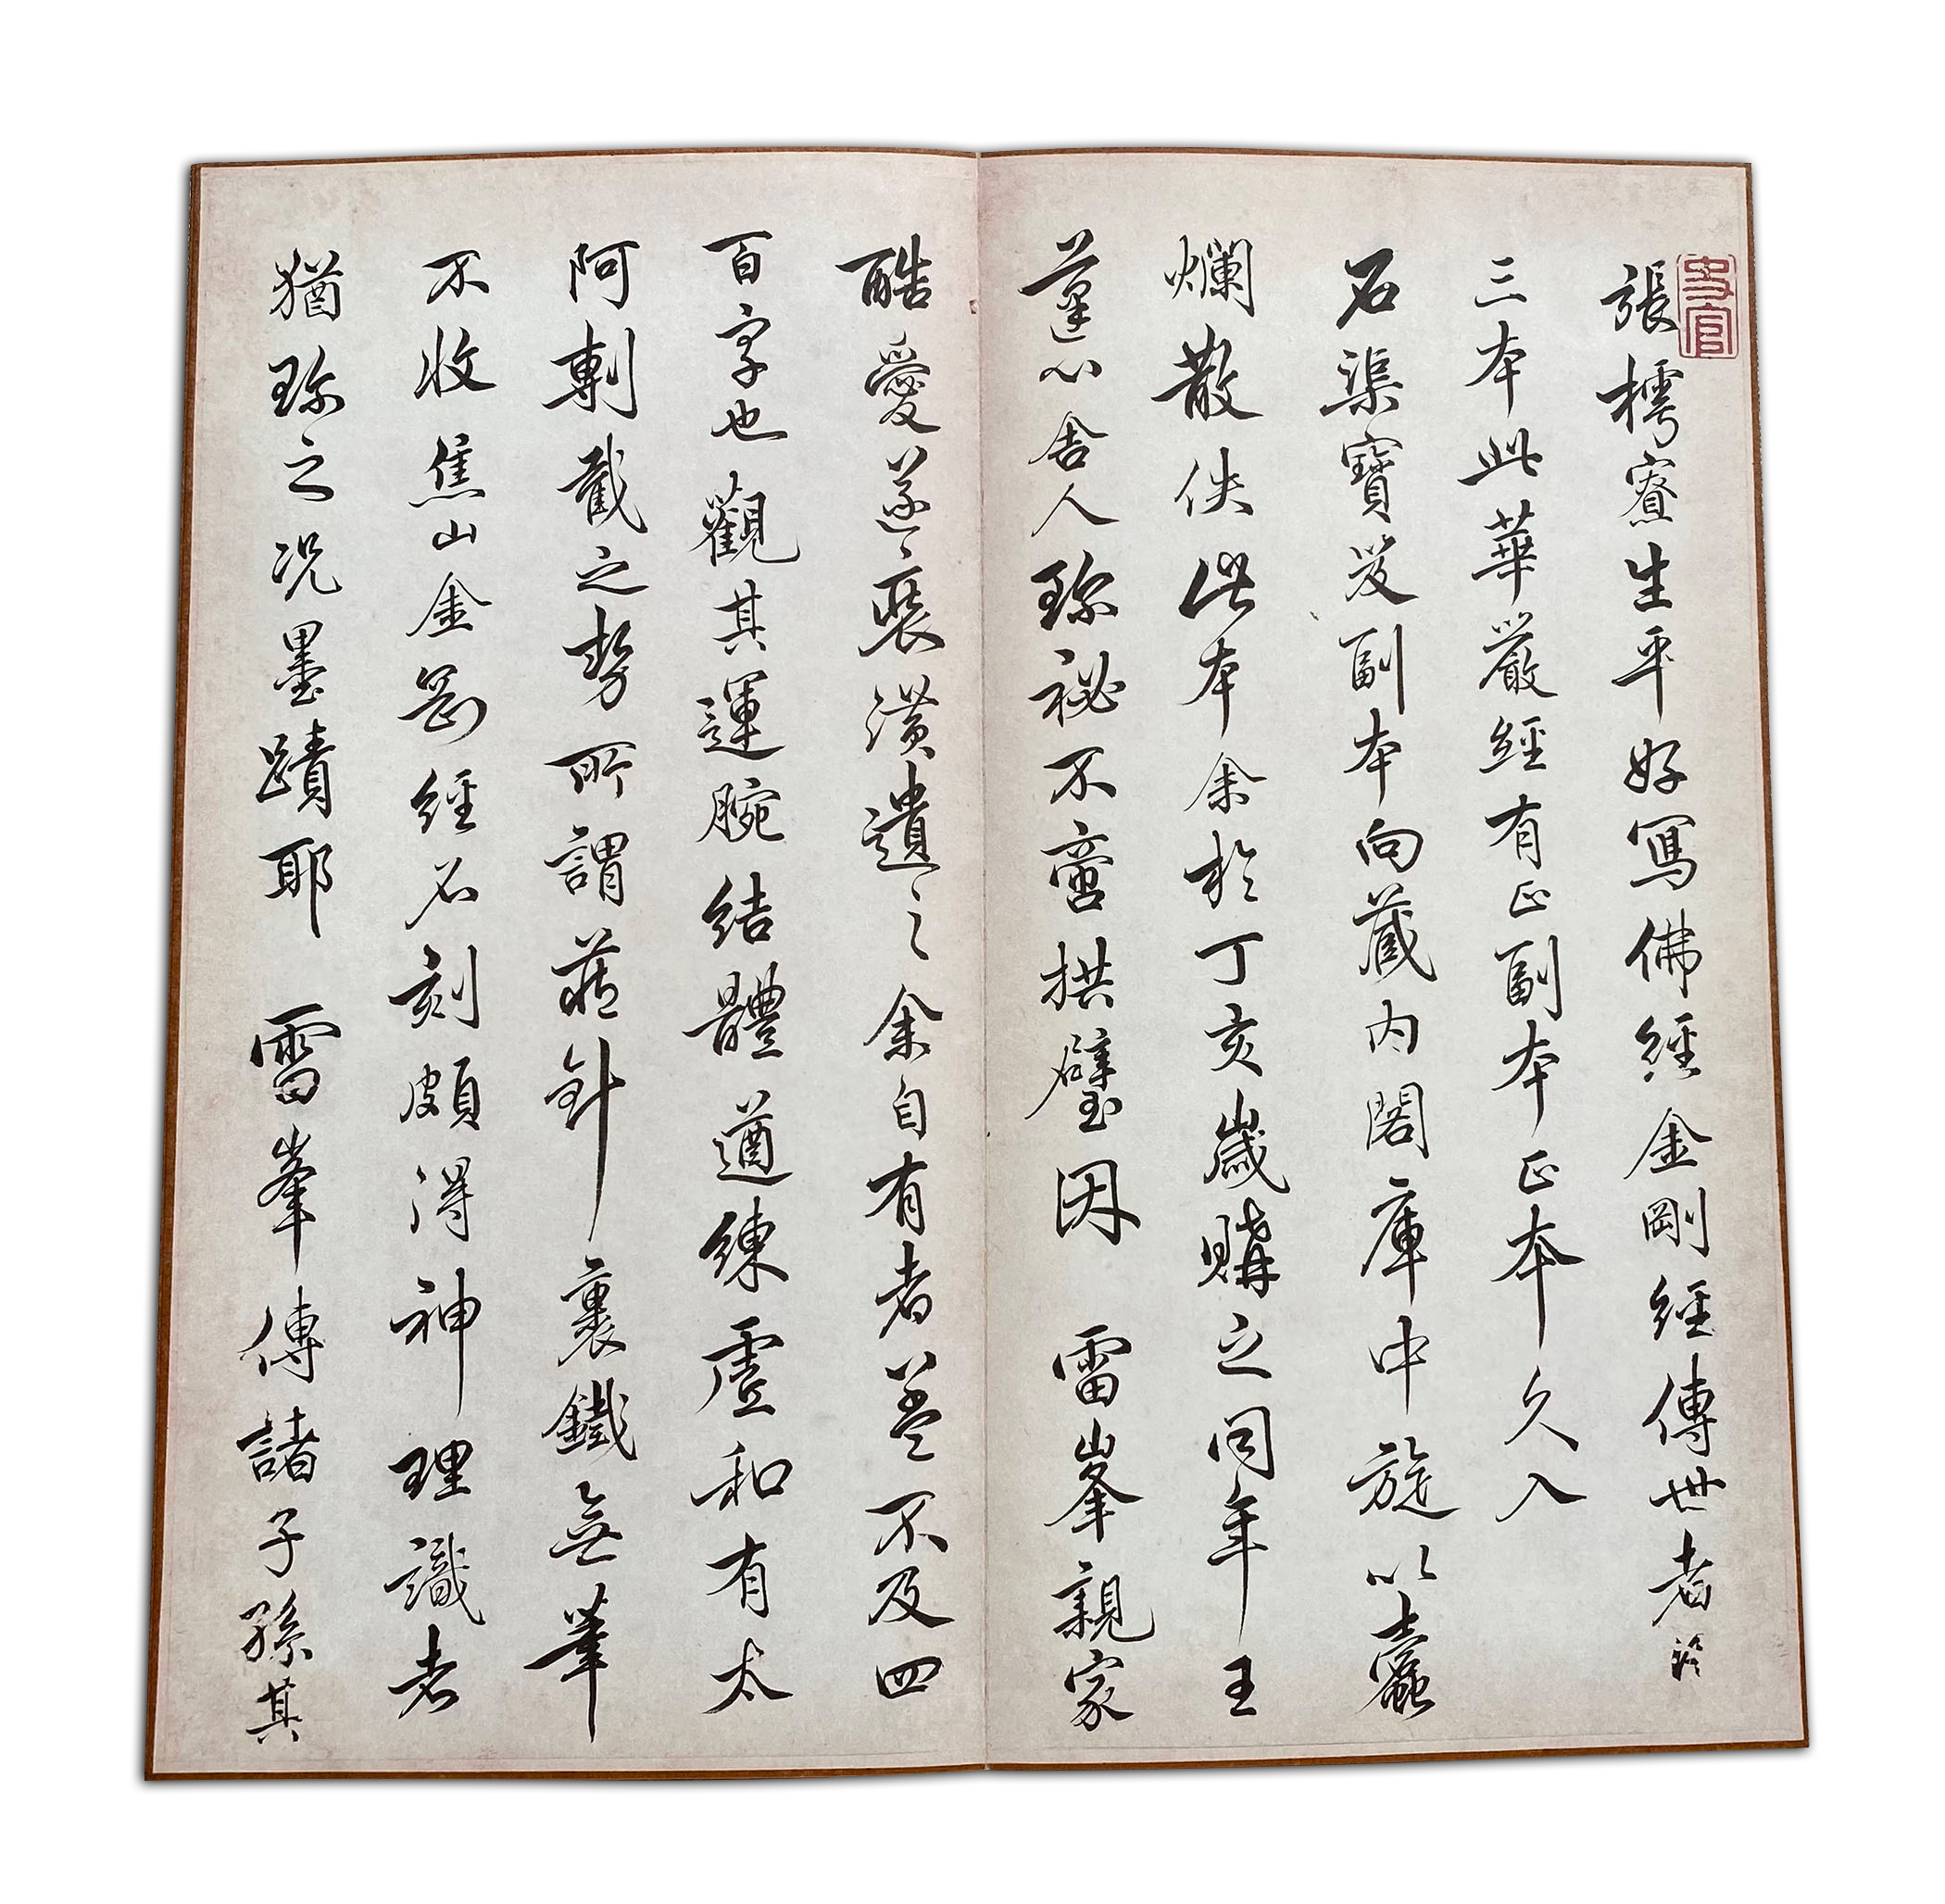 史官
張樗寮生平好寫佛經金剛經傳世者
三本此華嚴經有正副本正本久入
石渠寶笈副本向藏内閣庫中旋以蠹
爛散佚此本余於丁亥歲購之同年王
蓬心舍人珎祕不啻拱璧因 雷峯親家
酷愛遂裝潢遺之余自有者蓋不及四
百字也觀其運腕結體遒練虛和有太
阿剸截之勢所謂藏針裹鐵無筆
不收焦山金剛經石刻頗得神理識者
猶珎之况墨蹟耶 雷峯傳諸子孫其